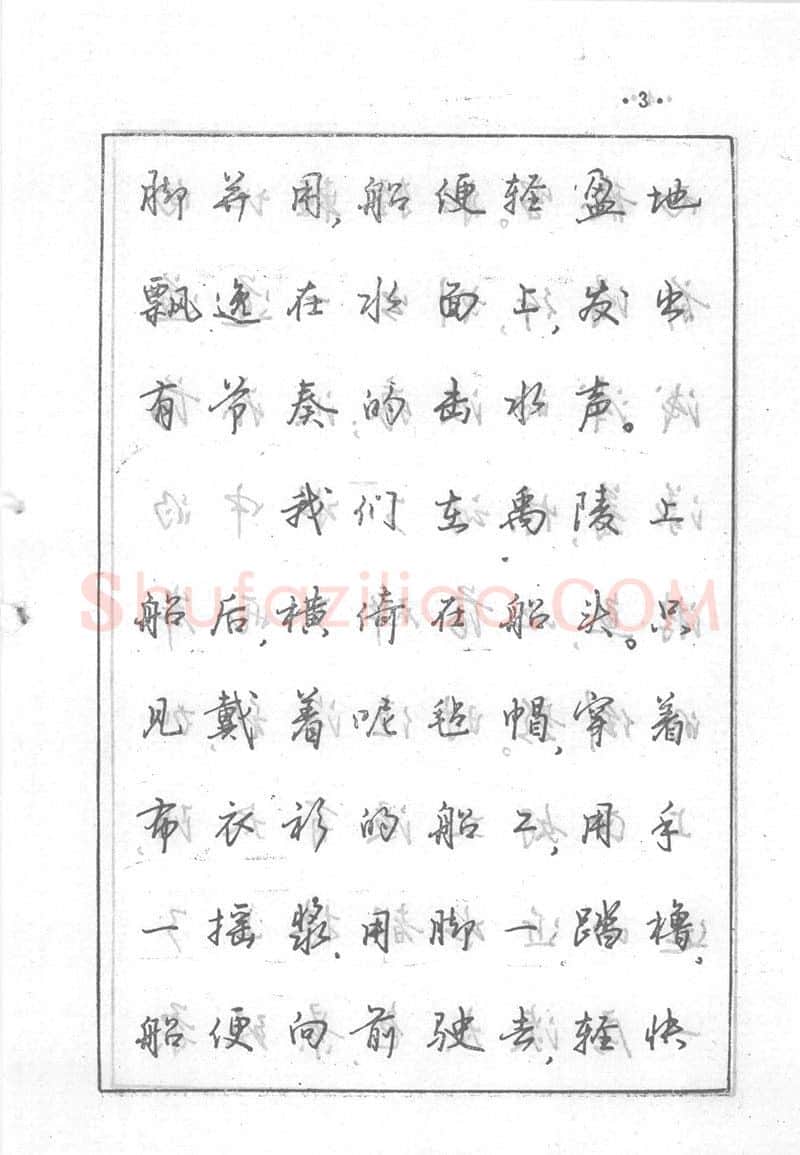 ·3·
脚并用,船便轻盈地
飘逸在水面上,发出
有节奏的击水声。
我们在禹陵上
船后,横倚在船头。只
见戴着呢毡帽,穿着
布衣衫的船工,用手
一摇浆.用脚一踏橹。
船便向前驶去,轻快
Shufaziliao.COM